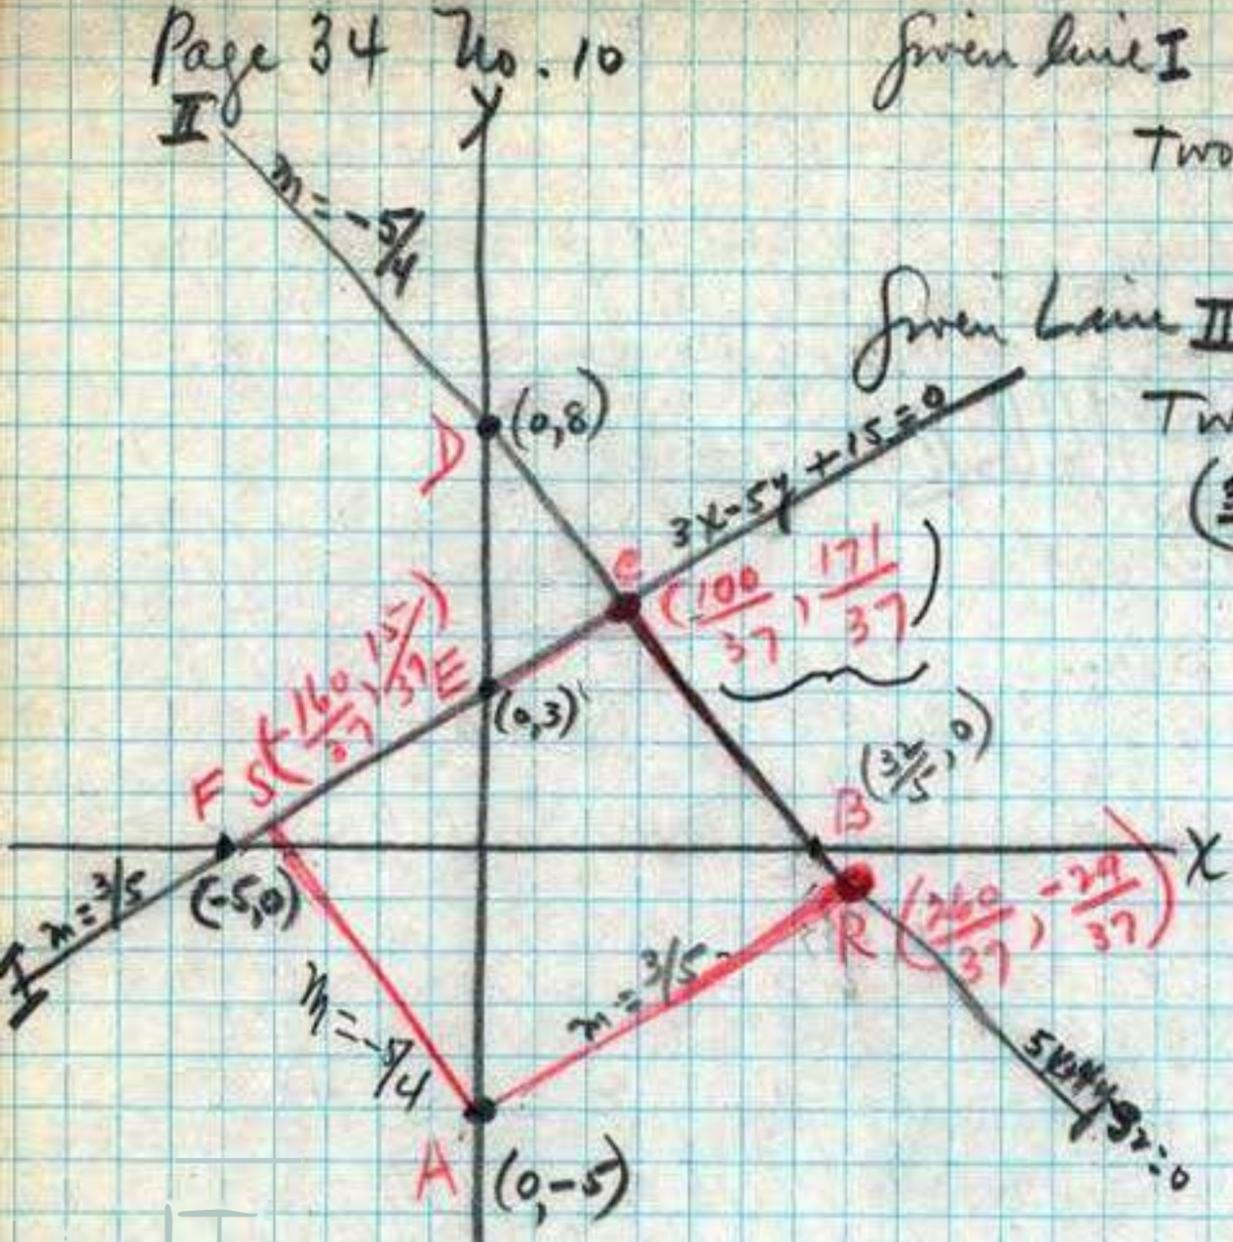 Page 34 No. 10
Given line I
Two
II
Y
m = -5/4
Given Line II
Tw
(3
D
(0,8)
3x-5y+15=0
C
(100/37, 171/37)
S(-160/37, 15/37)
E
(0,3)
(32/5, 0)
F
B
X
m=3/5
(-5,0)
R
(260/37, -29/37)
I
m = 3/5
m = -5/4
A
(0,-5)